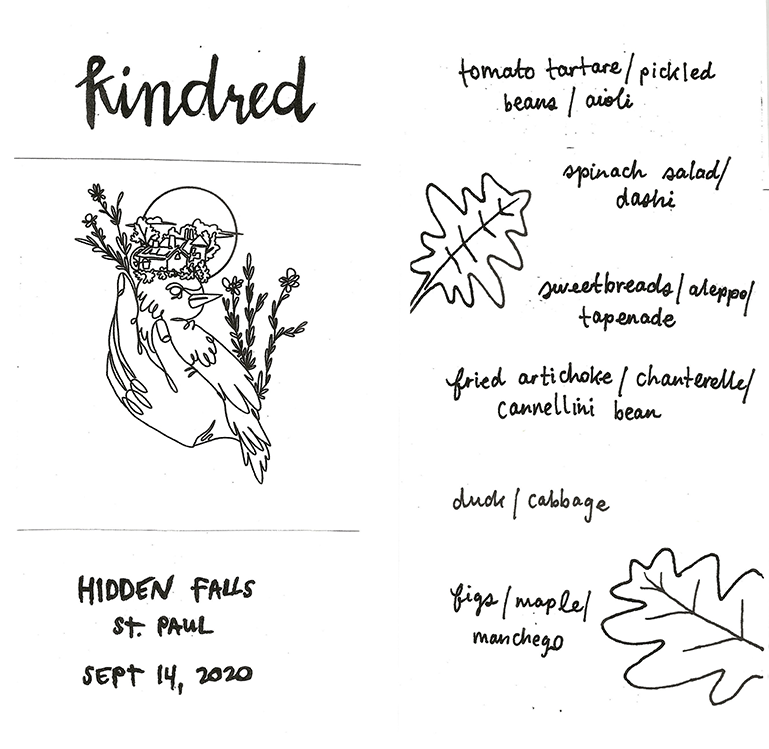 kindred
HIDDEN FALLS
ST. PAUL
SEPT 14, 2020
tomato tartare/pickled
beans/aioli
spinach salad/
dashi
sweetbreads/aleppo/
tapenade
fried artichoke/chanterelle/
cannellini bean
duck/cabbage
figs/maple/
manchego